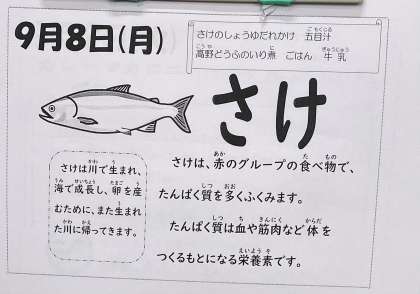 9月8日(月)
さけのしょうゆだれかけ　五目汁
高野どうふのいり煮　ごはん　牛乳
さけ
さけは川で生まれ、
海で成長し、卵を産
むために、また生まれ
た川に帰ってきます。
さけは、赤のグループの食べ物で、
たんぱく質を多くふくみます。
たんぱく質は血や筋肉など体を
つくるもとになる栄養素です。